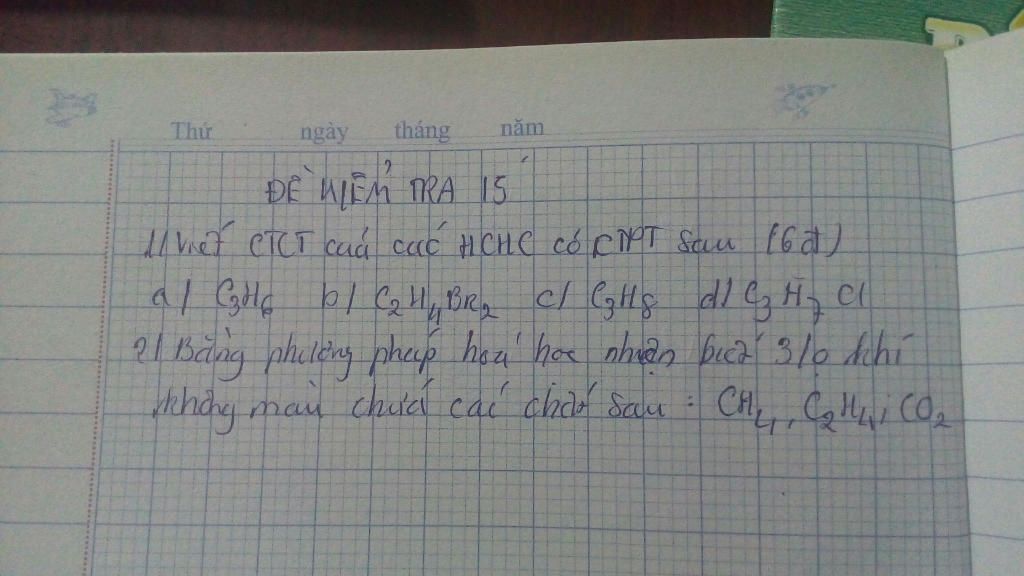 Thứ ngày tháng năm
ĐỀ KIỂM TRA 15'
1/ Viết CTCT của các HCHC có CTPT sau (6đ)
a/ C₃H₆ b/ C₂H₄Br₂ c/ C₃H₈ d/ C₃H₇Cl
2/ Bằng phương pháp hoá học nhận biết 3 lọ khí
không màu chứa các chất sau : CH₄, C₂H₄; CO₂